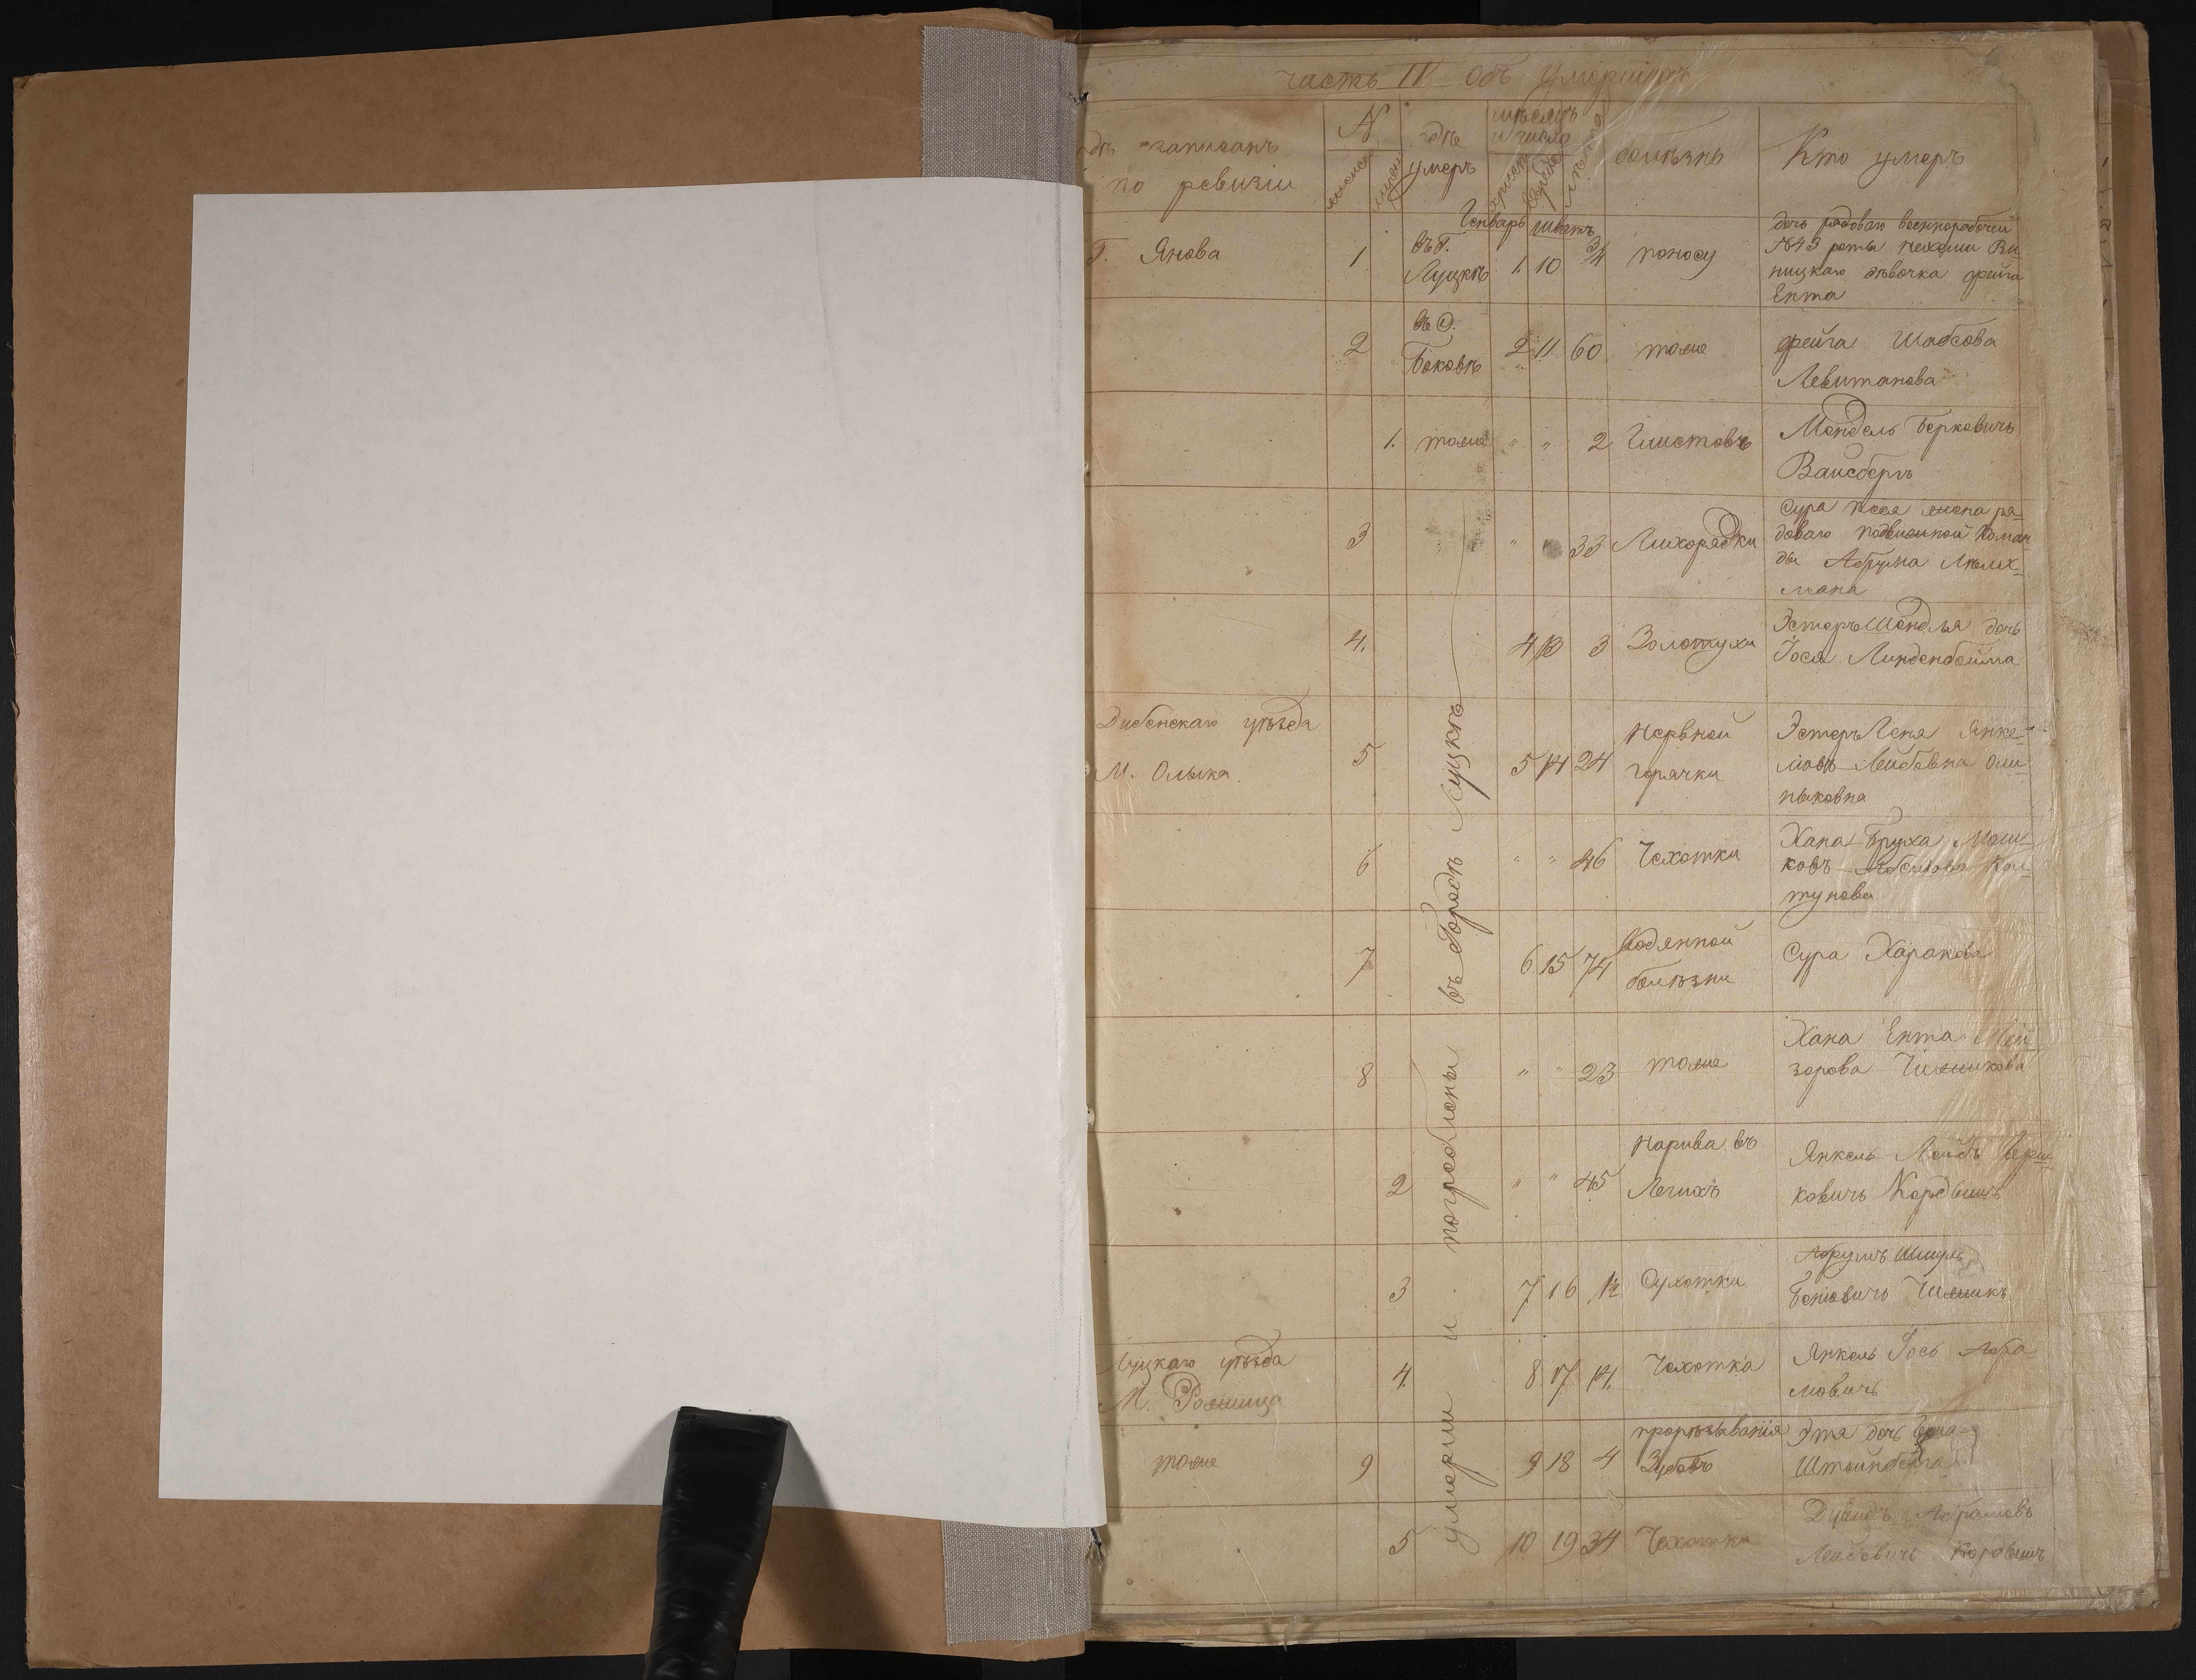 часть IV Объ умершихъ
гдѣ записанъ по ревизіи
N
женск
мужей
гдѣ умеръ
мѣсяцъ и число
христ
еврей
лѣта
болѣзнь
Кто умеръ
Генварь шватъ
Г. Янова 1 въ Г. Луцкѣ 1. 10 3/4 поносу
дочь рядоваго военнорабочей
№43 роты Нехэми Ви
ницкаго дѣвочка фрейга
Ента
2 въ С. Боковѣ 2 11 60 тоже
фрейга Шабсова
Левитанова
1. тоже " " 2 Глистовъ
Мендель Берковичъ
Вайсбергъ
3 " " 33 Лихорадки
Сура Песя жена ря-
доваго подвижной Коман-
ды Абрума
мана
4. 4 13 3 Золотухи
Эстеръ Шендля дочь
Іося Линденбойма
Дубенскаго уѣзда
М. Олыка. 5 5 14 24
Нервной
горячки
Эстеръ Леня Янке-
Лейбовна Оли-
ныковна
6 " " 46 Чехотки
Хана Бруха Мош-
ковъ
тунова
7 6 15 74
Водянной
болѣзни
Сура Харакова
8 " " 23 тоже
Хана Ента Мей-
зорова Чижикова
2 " " 45
Нарива въ
Легихъ
Янкель Лейбъ Берш-
ковичъ Кордышъ
3 7 16 1/2 Сухотки
Абрумъ Шмуль
Беніовичъ Чижикъ
Луцкаго уѣзда
М. Рожища 4. 8 17 14. Чехотка
Янкель Іось Абра
мовичъ
тоже 9 9 18 4
прорѣзыванія
Зубовъ
Этя дочь
Штейнберга
5 10 19 34 Чехотка
Дувидъ Абрамовъ
Лейбовичъ Кордышъ
умерши и погреблены въ Городѣ Луцкѣ